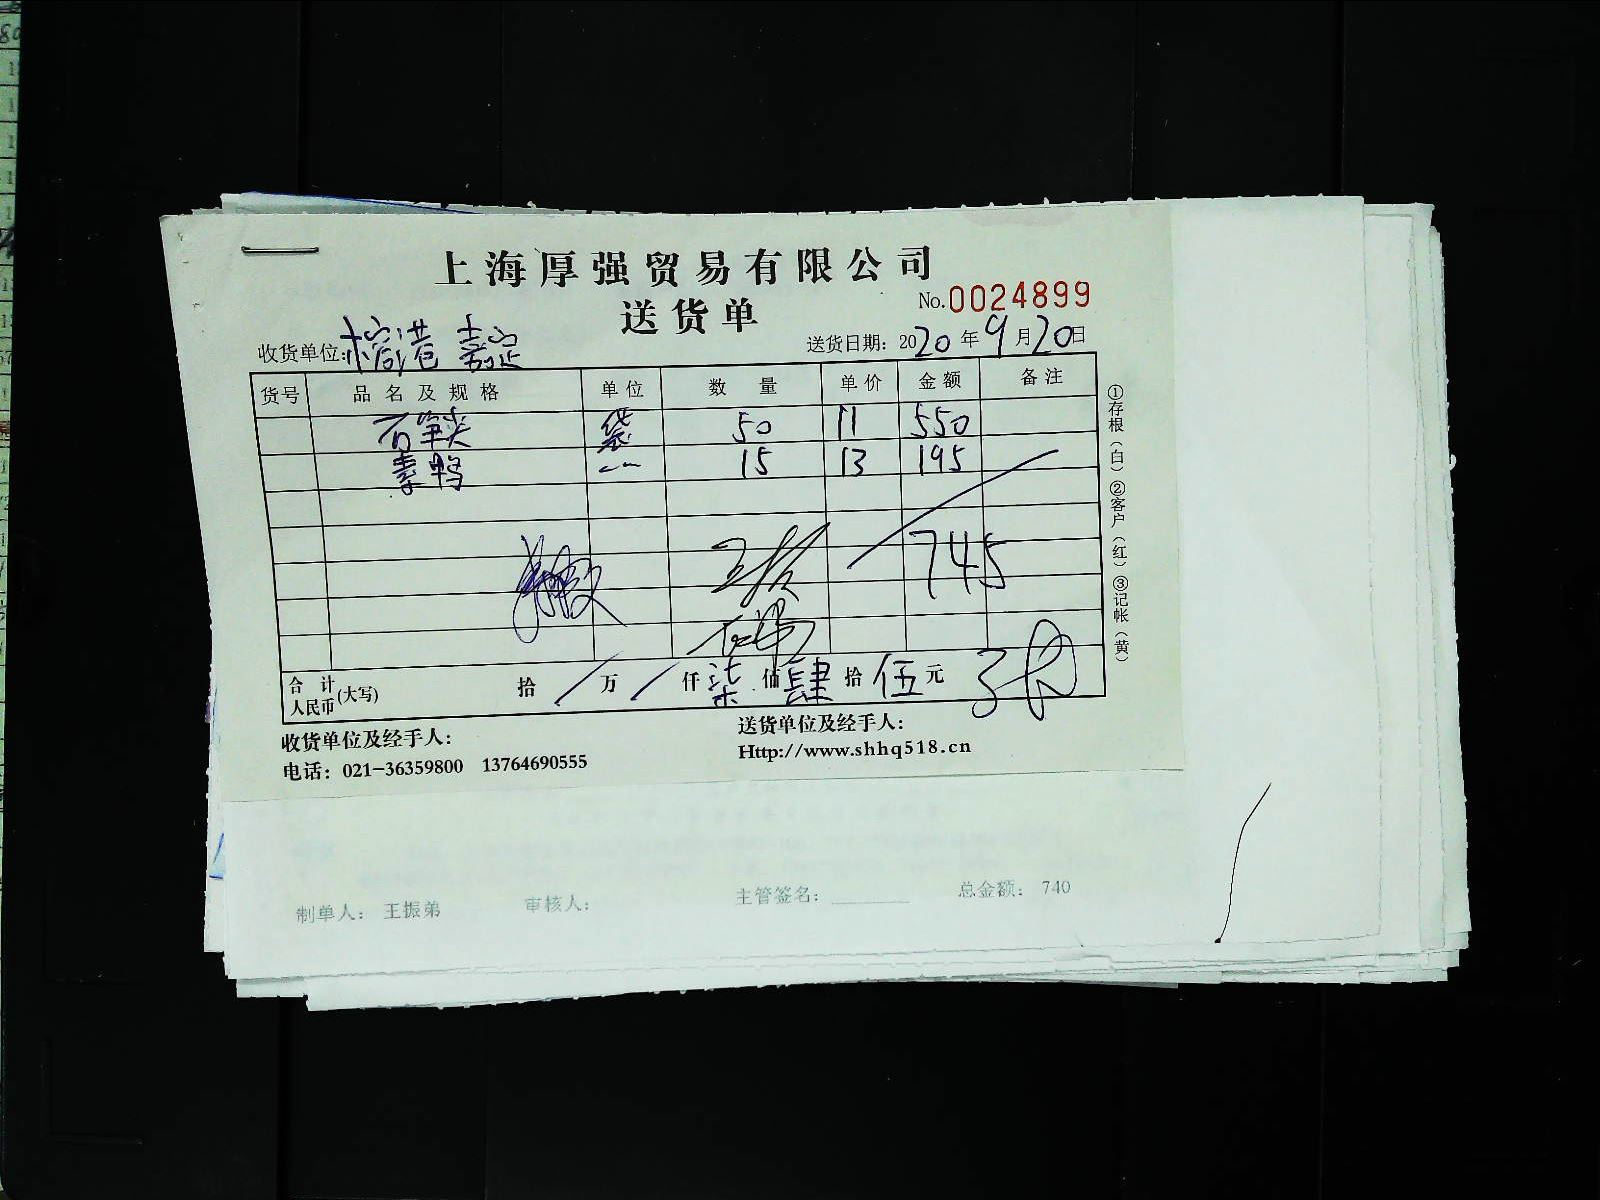 上海厚强贸易有限公司
送货单
No.0024899
收货单位: 嘉定
送货日期: 2020年9月20日
货号 品名及规格 单位 数量 单价 金额 备注
石笋尖 袋 50 11 550
素鸭 〃 15 13 195
745
合计人民币(大写) 拾/万/仟柒佰肆拾伍元
①存根(白)②客户(红)③记帐(黄)
收货单位及经手人:
送货单位及经手人:
电话: 021-36359800 13764690555
Http://www.shhq518.cn
制单人: 王振弟 审核人: 主管签名: 总金额: 740